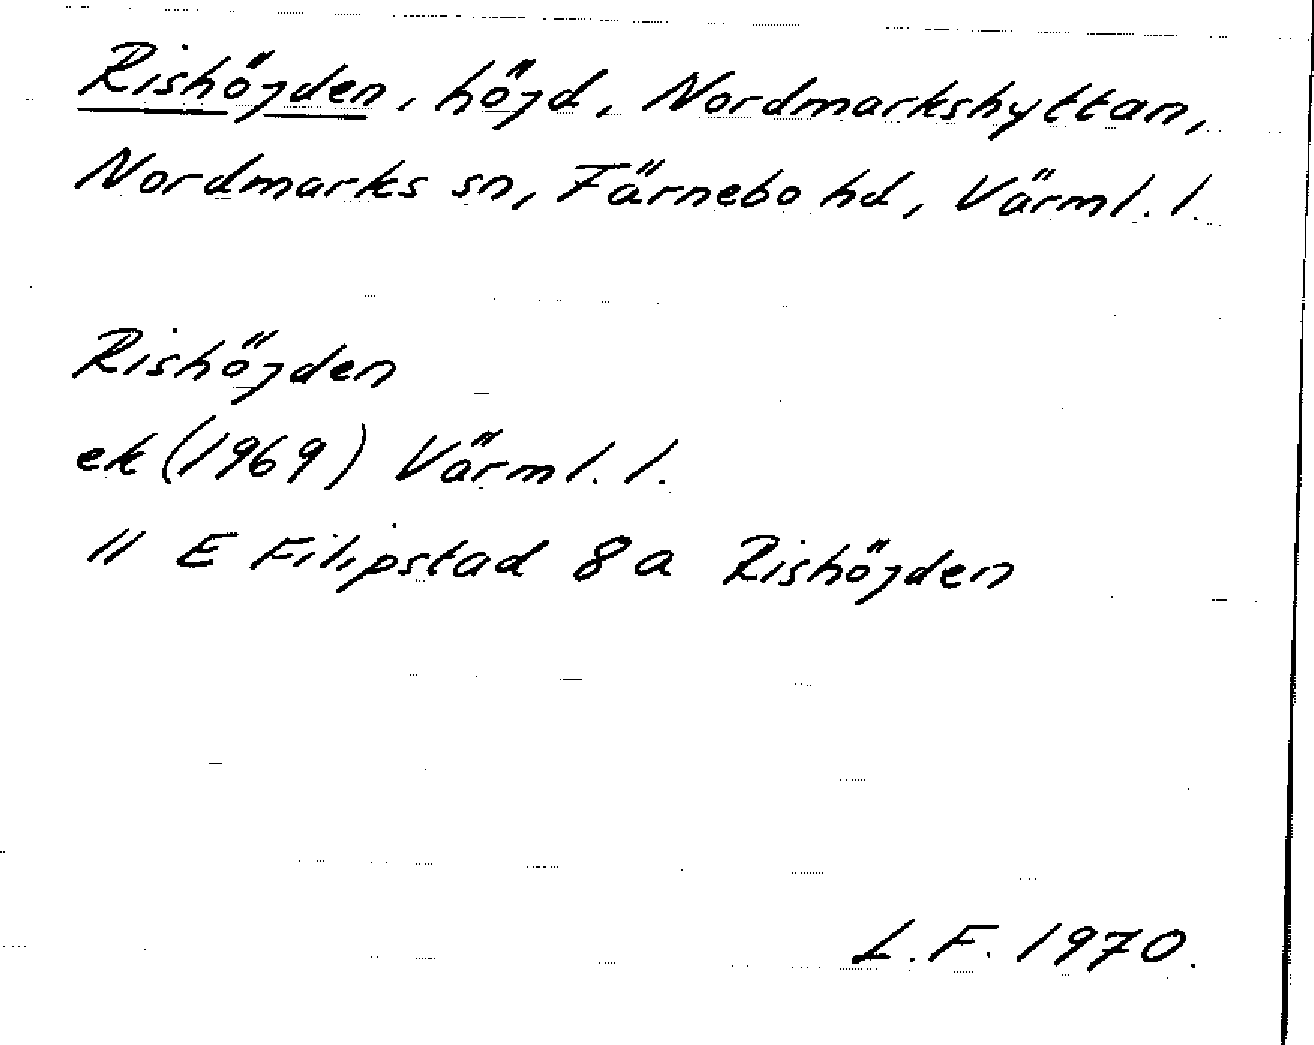 Rishöjden, höjd, Nordmarkshyttan,
Nordmarks sn, Färnebo hd, Värml. l.
Rishöjden
ek (1969) Värml. l.
" E Filipstad 8 a Rishöjden
L.F. 1970.